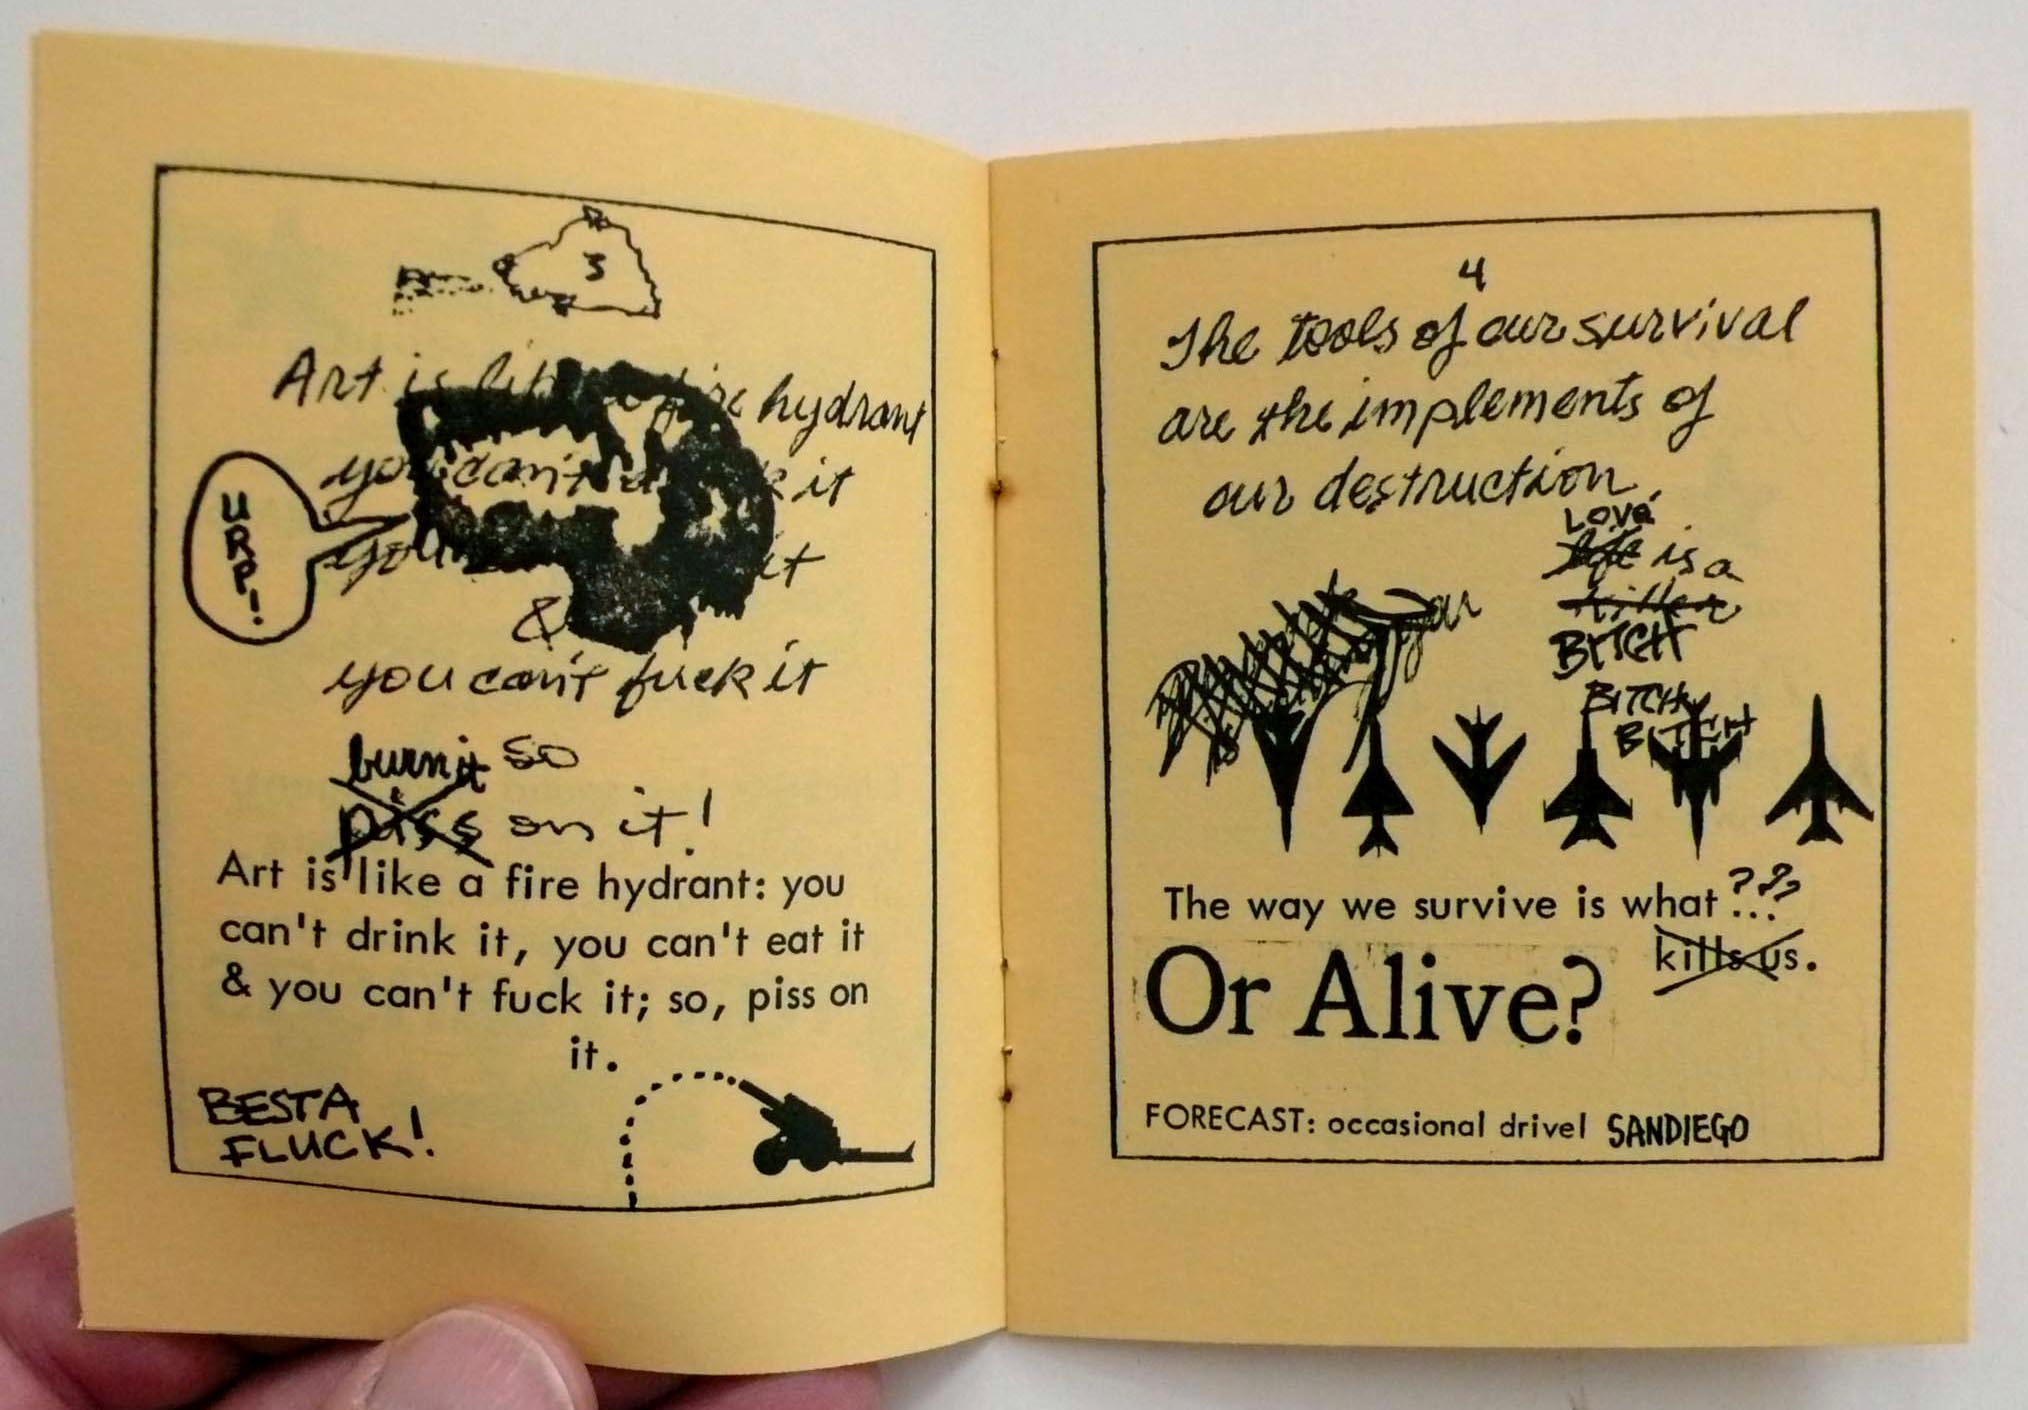 3
Art is like fire hydrant
you can't it
URP!
you it
&
you can't fuck it
burn it so
piss on it!
Art is like a fire hydrant: you
can't drink it, you can't eat it
& you can't fuck it; so, piss on
it.
BESTA
FLUCK!
4
The tools of our survival
are the implements of
our destruction.
Love
life is a
killer
BITCH
BITCHY
BITCH
The way we survive is what ???
...
kills us.
Or Alive?
FORECAST: occasional drivel SANDIEGO